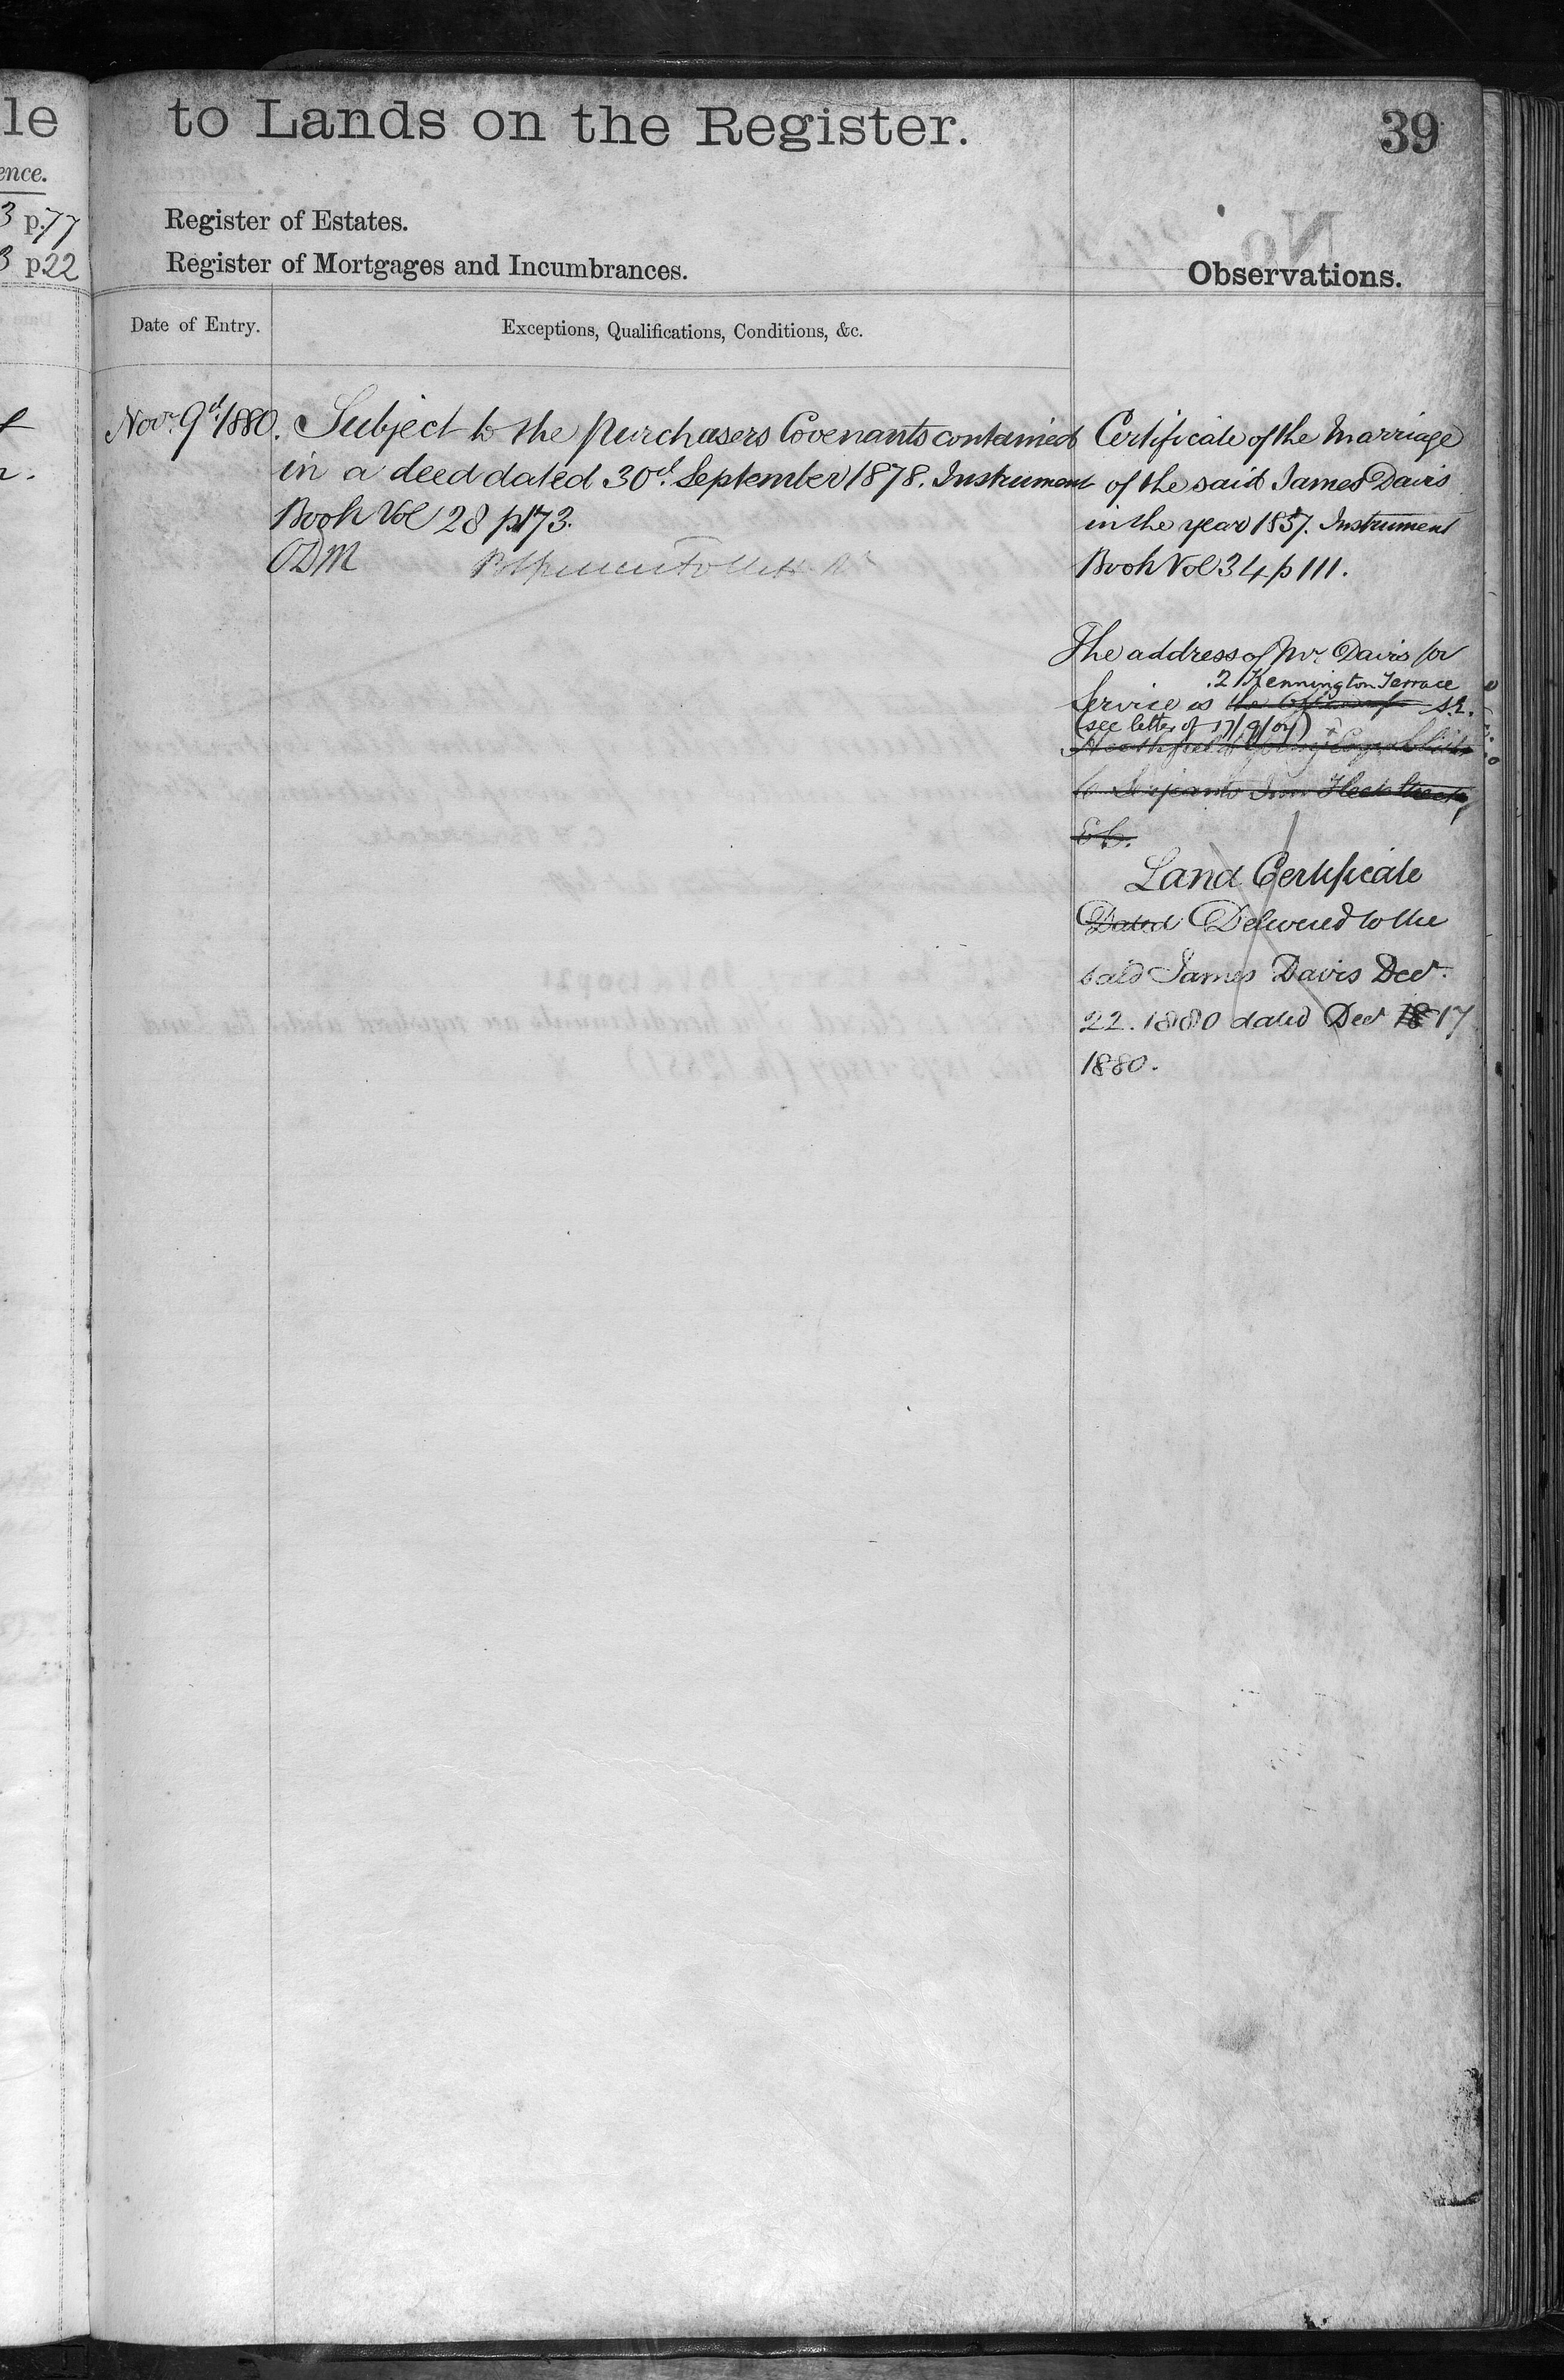 le
ence.
3 p.77
3 p.22
to Lands on the Register.
39
Register of Estates.
Register of Mortgages and Incumbrances.
Observations.
Date of Entry.
Exceptions, Qualifications, Conditions, &c.
Novr. 9d. 1880.
Subject to the purchasers Covenants contained
in a deed dated 30d. September 1878. Instrument
Book Vol 28 p173.
ODM
Certificate of the Marriage
of the said James Davis
in the year 1857. Instrument
Book Vol 34 p 111.
The address of Mr. Davis for
2 Kennington Terrace
Service is the Office of S.E.
(see letter of 17/9/04)
Serjeants Inn Fleet Street
E C.
Land Certificate
Dated Delivered to the
said James Davis Decr.
22. 1880 dated Decr 18 17
1880.